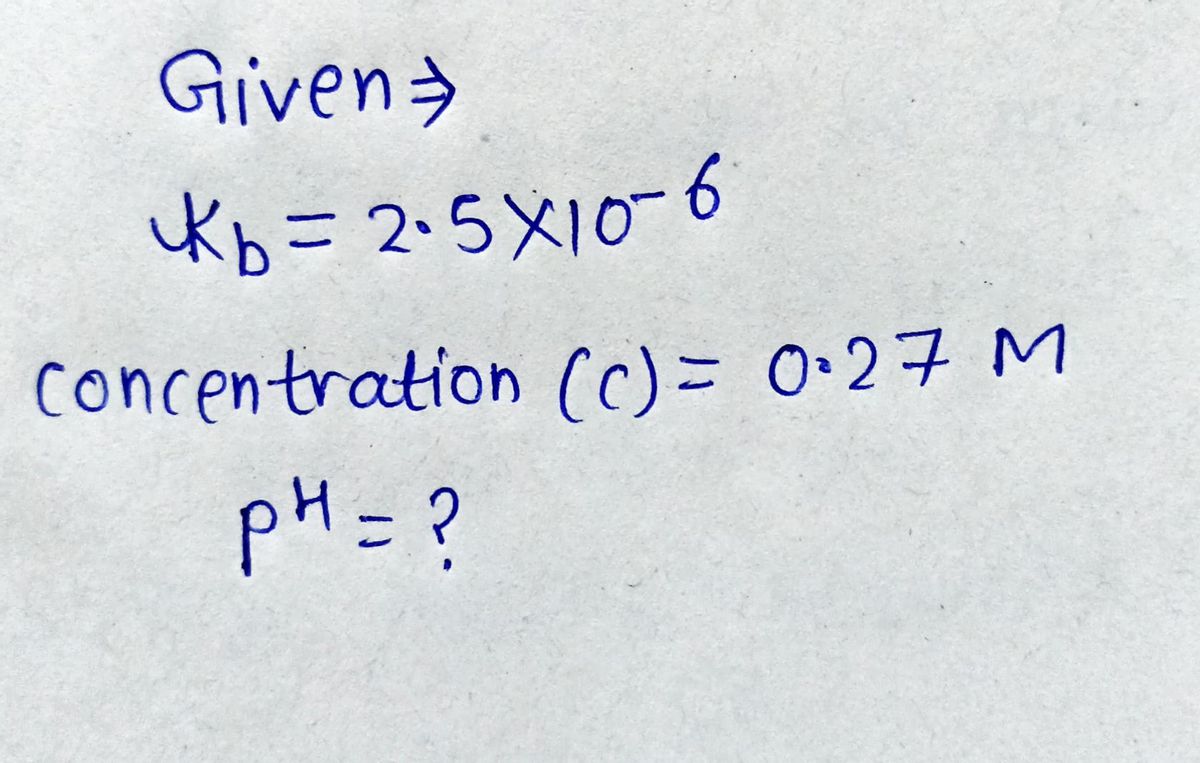 Given ⇒
Kb = 2.5 X10-6
concentration (c) = 0.27 M
pH = ?